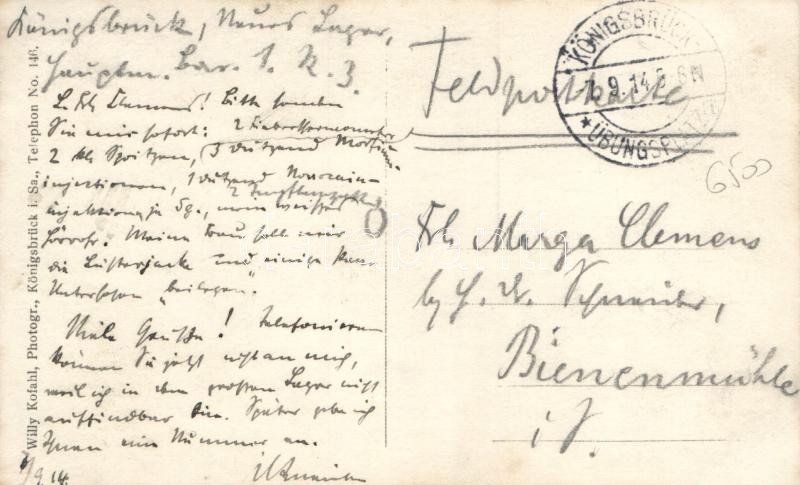 Königsbrück, Neues Lager,
Hauptm. Bar. 1. R. 3.
L. Frl. Clemens! Bitte senden
Sie mir sofort: 2 Fieberthermometer
2 kl. Spritzen, 3 Dutzend Morfium-
injektionen, 1 Dutzend Novocain-
injektionen je 5g., mein weißes
Hörrohr. Meine Frau soll mir
die Lüsterjacke und einige Paar
Unterhosen beilegen.
Viele Grüße! Telefonieren
können Sie jetzt nicht an mich,
weil ich in dem großen Lager nicht
auffindbar bin. Später gebe ich
Ihnen eine Nummer an.
9.14.
Willy Kofahl, Photogr., Königsbrück i. Sa., Telephon No. 146.
Feldpostkarte
KÖNIGSBRÜCK
9.14.
★ ÜBUNGSPLATZ
6500
Frl. Marga Clemens
Schneider,
Bienenmühle